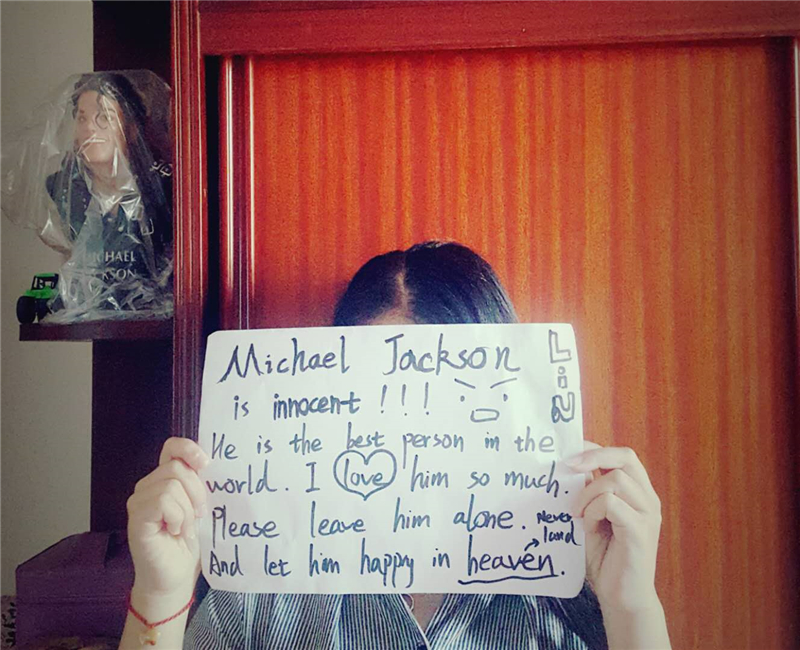 MICHAEL
JACKSON
Michael Jackson
is innocent !!!
He is the best person in the
world. I love him so much.
Please leave him alone.
Never
land
And let him happy in heaven.